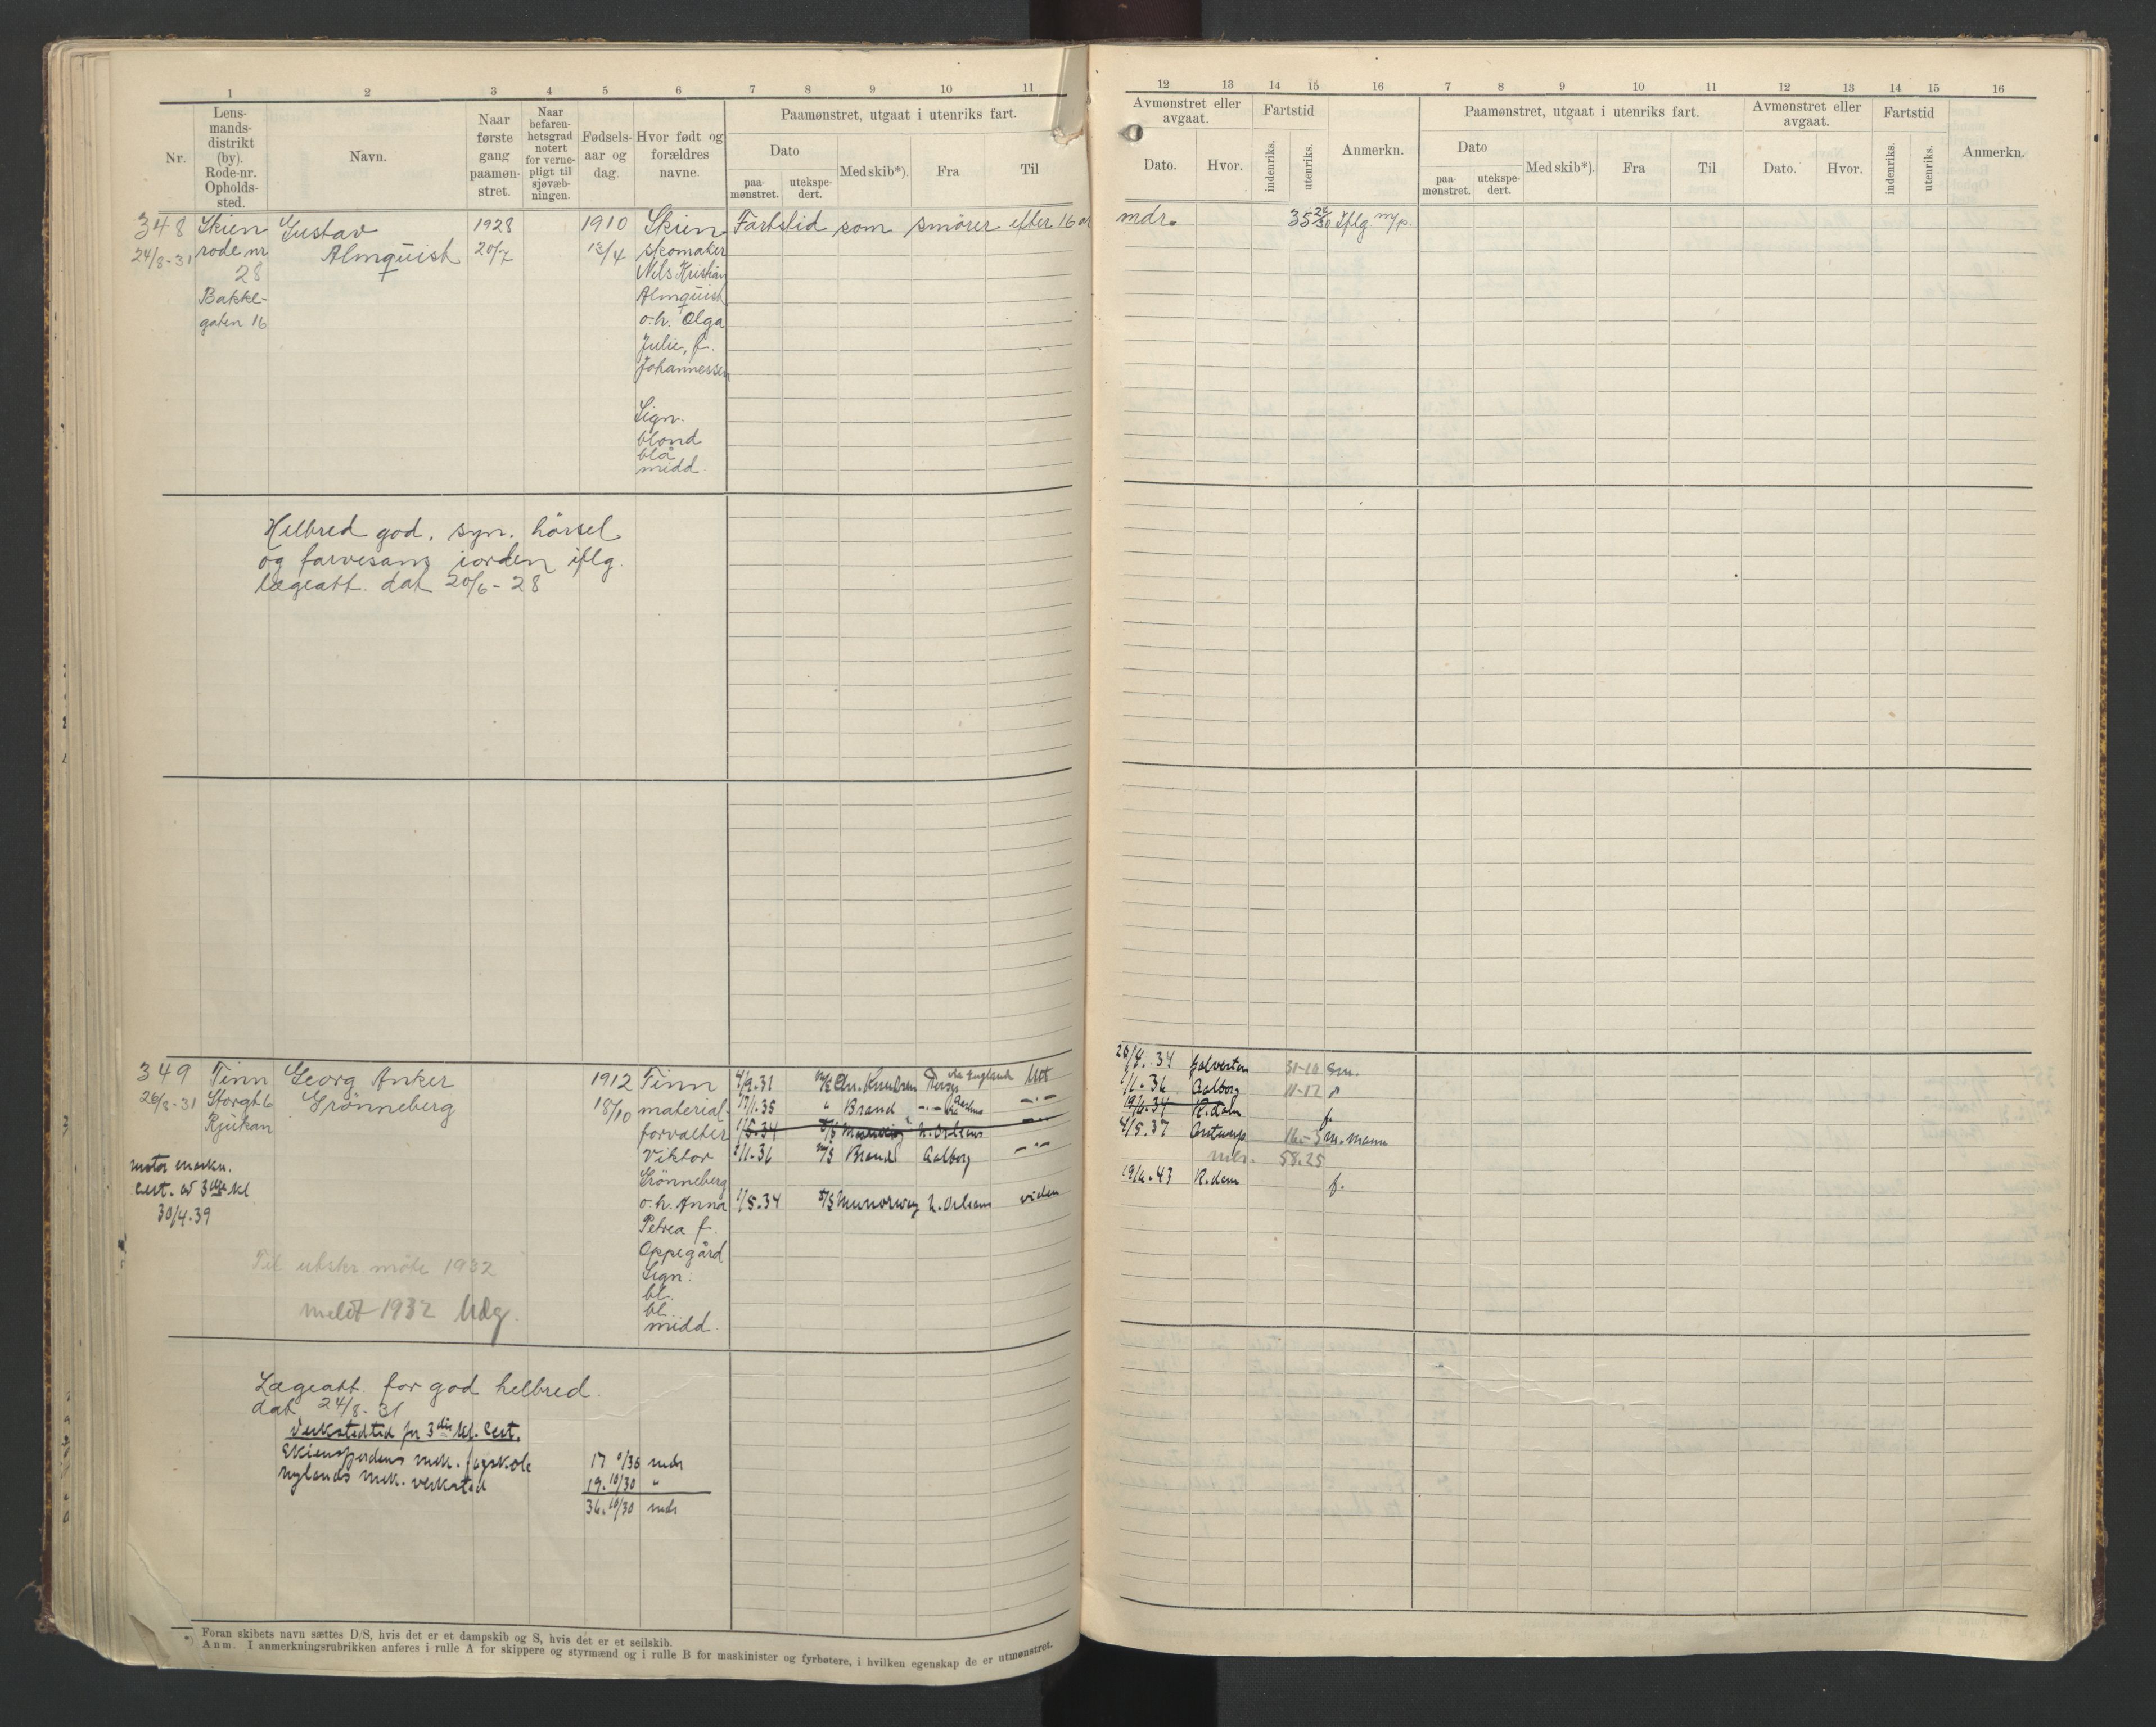 1 2 3 4 5 6 7 8 9 10 11
Nr.
Lens-
mands-
distrikt
(by).
Rode-nr.
Opholds-
sted.
Navn.
Naar
første
gang
paamøn-
stret.
Naar
befaren-
hetsgrad
notert
for verne-
pligt til
sjøvæb-
ningen.
Fødsels-
aar og
dag.
Hvor født og
forældres
navne.
Paamønstret, utgaat i utenriks fart.
Dato
paa-
mønstret.
utekspe-
dert.
Med skib*).
Fra
Til
348 Skien Gustav 1928 1910 Skien Fartstid som smører efter 16 år
24/8-31 rode nr Almquist 20/7 13/4 skomaker
28 Nils Kristian
Bakke- Almquist
gaten 16 o.h. Olga
Julie, f.
Johannessen
Sign.
blond
blå
midd.
Helbred god, syn, hørsel
og farvesans iorden iflg.
lægeatt. dat 20/6-28
349 Tinn Georg Anker 1912 Tinn 4/9.31 M/S Chr. Knudsen via England Uet
26/8-31 Storgt 6 Grønneberg 18/10 material- 17/1.35 " Brand -"- -"-
Rjukan forvalter 1/5.34 N. Orleans -"-
Viktor 2/1.36 M/S Brand Aalborg -"-
motor maskn. Grønneberg
Cert. av 3dje kl o.h. Anna 1/5.34 Munorway N. Orleans viden
30/4.39 Petrea f.
Oppegård
Til utskr. møte 1932 Sign:
bl.
meldt 1932 Udg. bl.
midd.
Lægeatt. for god helbred.
dat 24/8-31
Verkstedtid for 3dje kl. Cert.
Skiensfjordens mek. fagskole 17 0/30 mdr
Nylands mek. verksted 19.10/30 "
36.10/30 mdr
*) Foran skibets navn sættes D/S, hvis det er et dampskib og S, hvis det er et seilskib.
Anm. I anmerkningsrubrikken anføres i rulle A for skippere og styrmænd og i rulle B for maskinister og fyrbøtere, i hvilken egenskap de er utmønstret.
12 13 14 15 16 7 8 9 10 11 12 13 14 15 16
Avmønstret eller
avgaat.
Dato. Hvor.
Fartstid
indenriks. utenriks.
Anmerkn.
Paamønstret, utgaat i utenriks fart.
Dato
paa-
mønstret.
utekspe-
dert.
Med skib*).
Fra
Til
Avmønstret eller
avgaat.
Dato. Hvor.
Fartstid
indenriks. utenriks.
Anmerkn.
mdr. 35 24/30 Iflg. m/p.
20/4.34 Galveston 31-10 Sm.
1/1.36 Aalborg 11-17
19/6.34 R.dam f.
4/5.37 Antwerp 16-5 m.mann
mdr. 58.25
19/6.43 R.dam f.